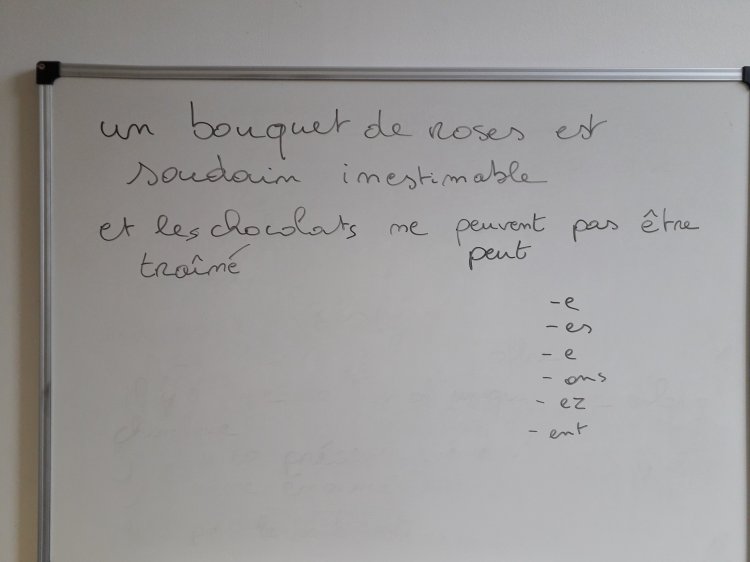 un bouquet de roses est
soudain inestimable
et les chocolats ne peuvent pas être
traîné
peut
-e
-es
-e
-ons
-ez
-ent